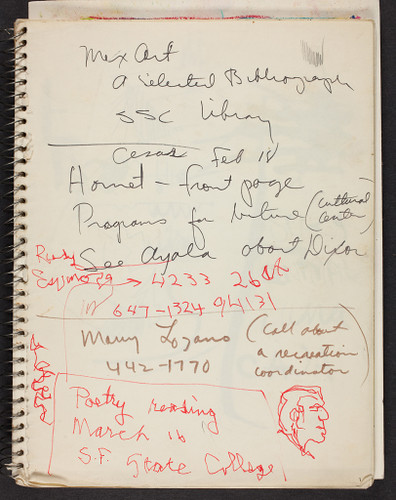 Mex Art
A Selected Bibliography
SSC Library
Cesar Feb 18
Hornet - front page
Programs for (Cultural
Center)
See Ayala about Dixon
Rudy
→ 4233 26th
647-1324 94131
Manny Lozano (Call about
442-1770 a recreation
coordinator)
Poetry reading
March 16
S.F. State College